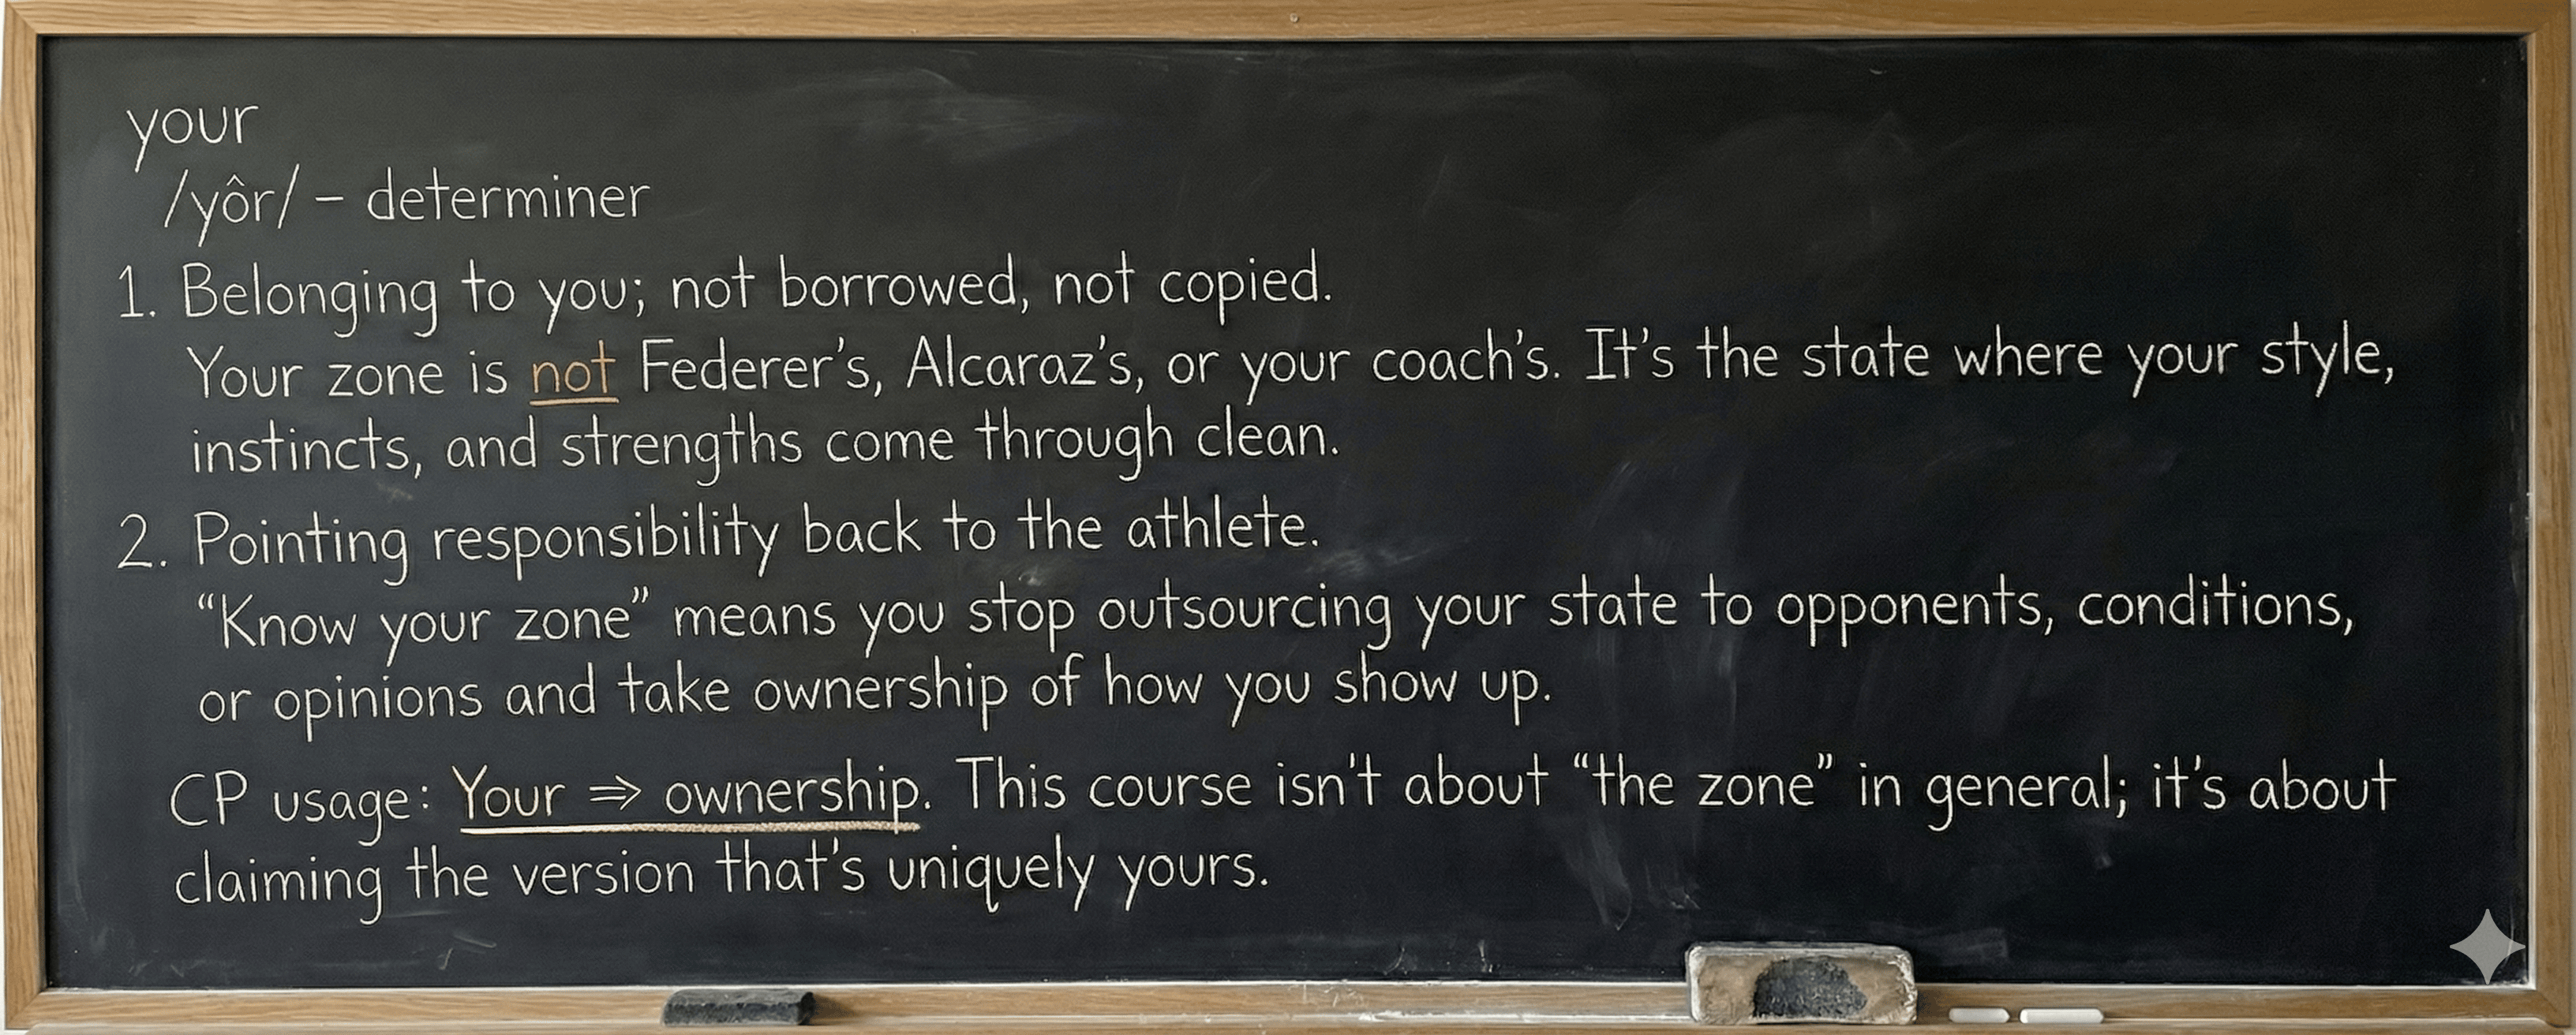 your
/yôr/ – determiner
1. Belonging to you; not borrowed, not copied.
Your zone is not Federer's, Alcaraz's, or your coach's. It's the state where your style,
instincts, and strengths come through clean.
2. Pointing responsibility back to the athlete.
“Know your zone” means you stop outsourcing your state to opponents, conditions,
or opinions and take ownership of how you show up.
CP usage: Your ⇒ ownership. This course isn't about “the zone” in general; it's about
claiming the version that's uniquely yours.